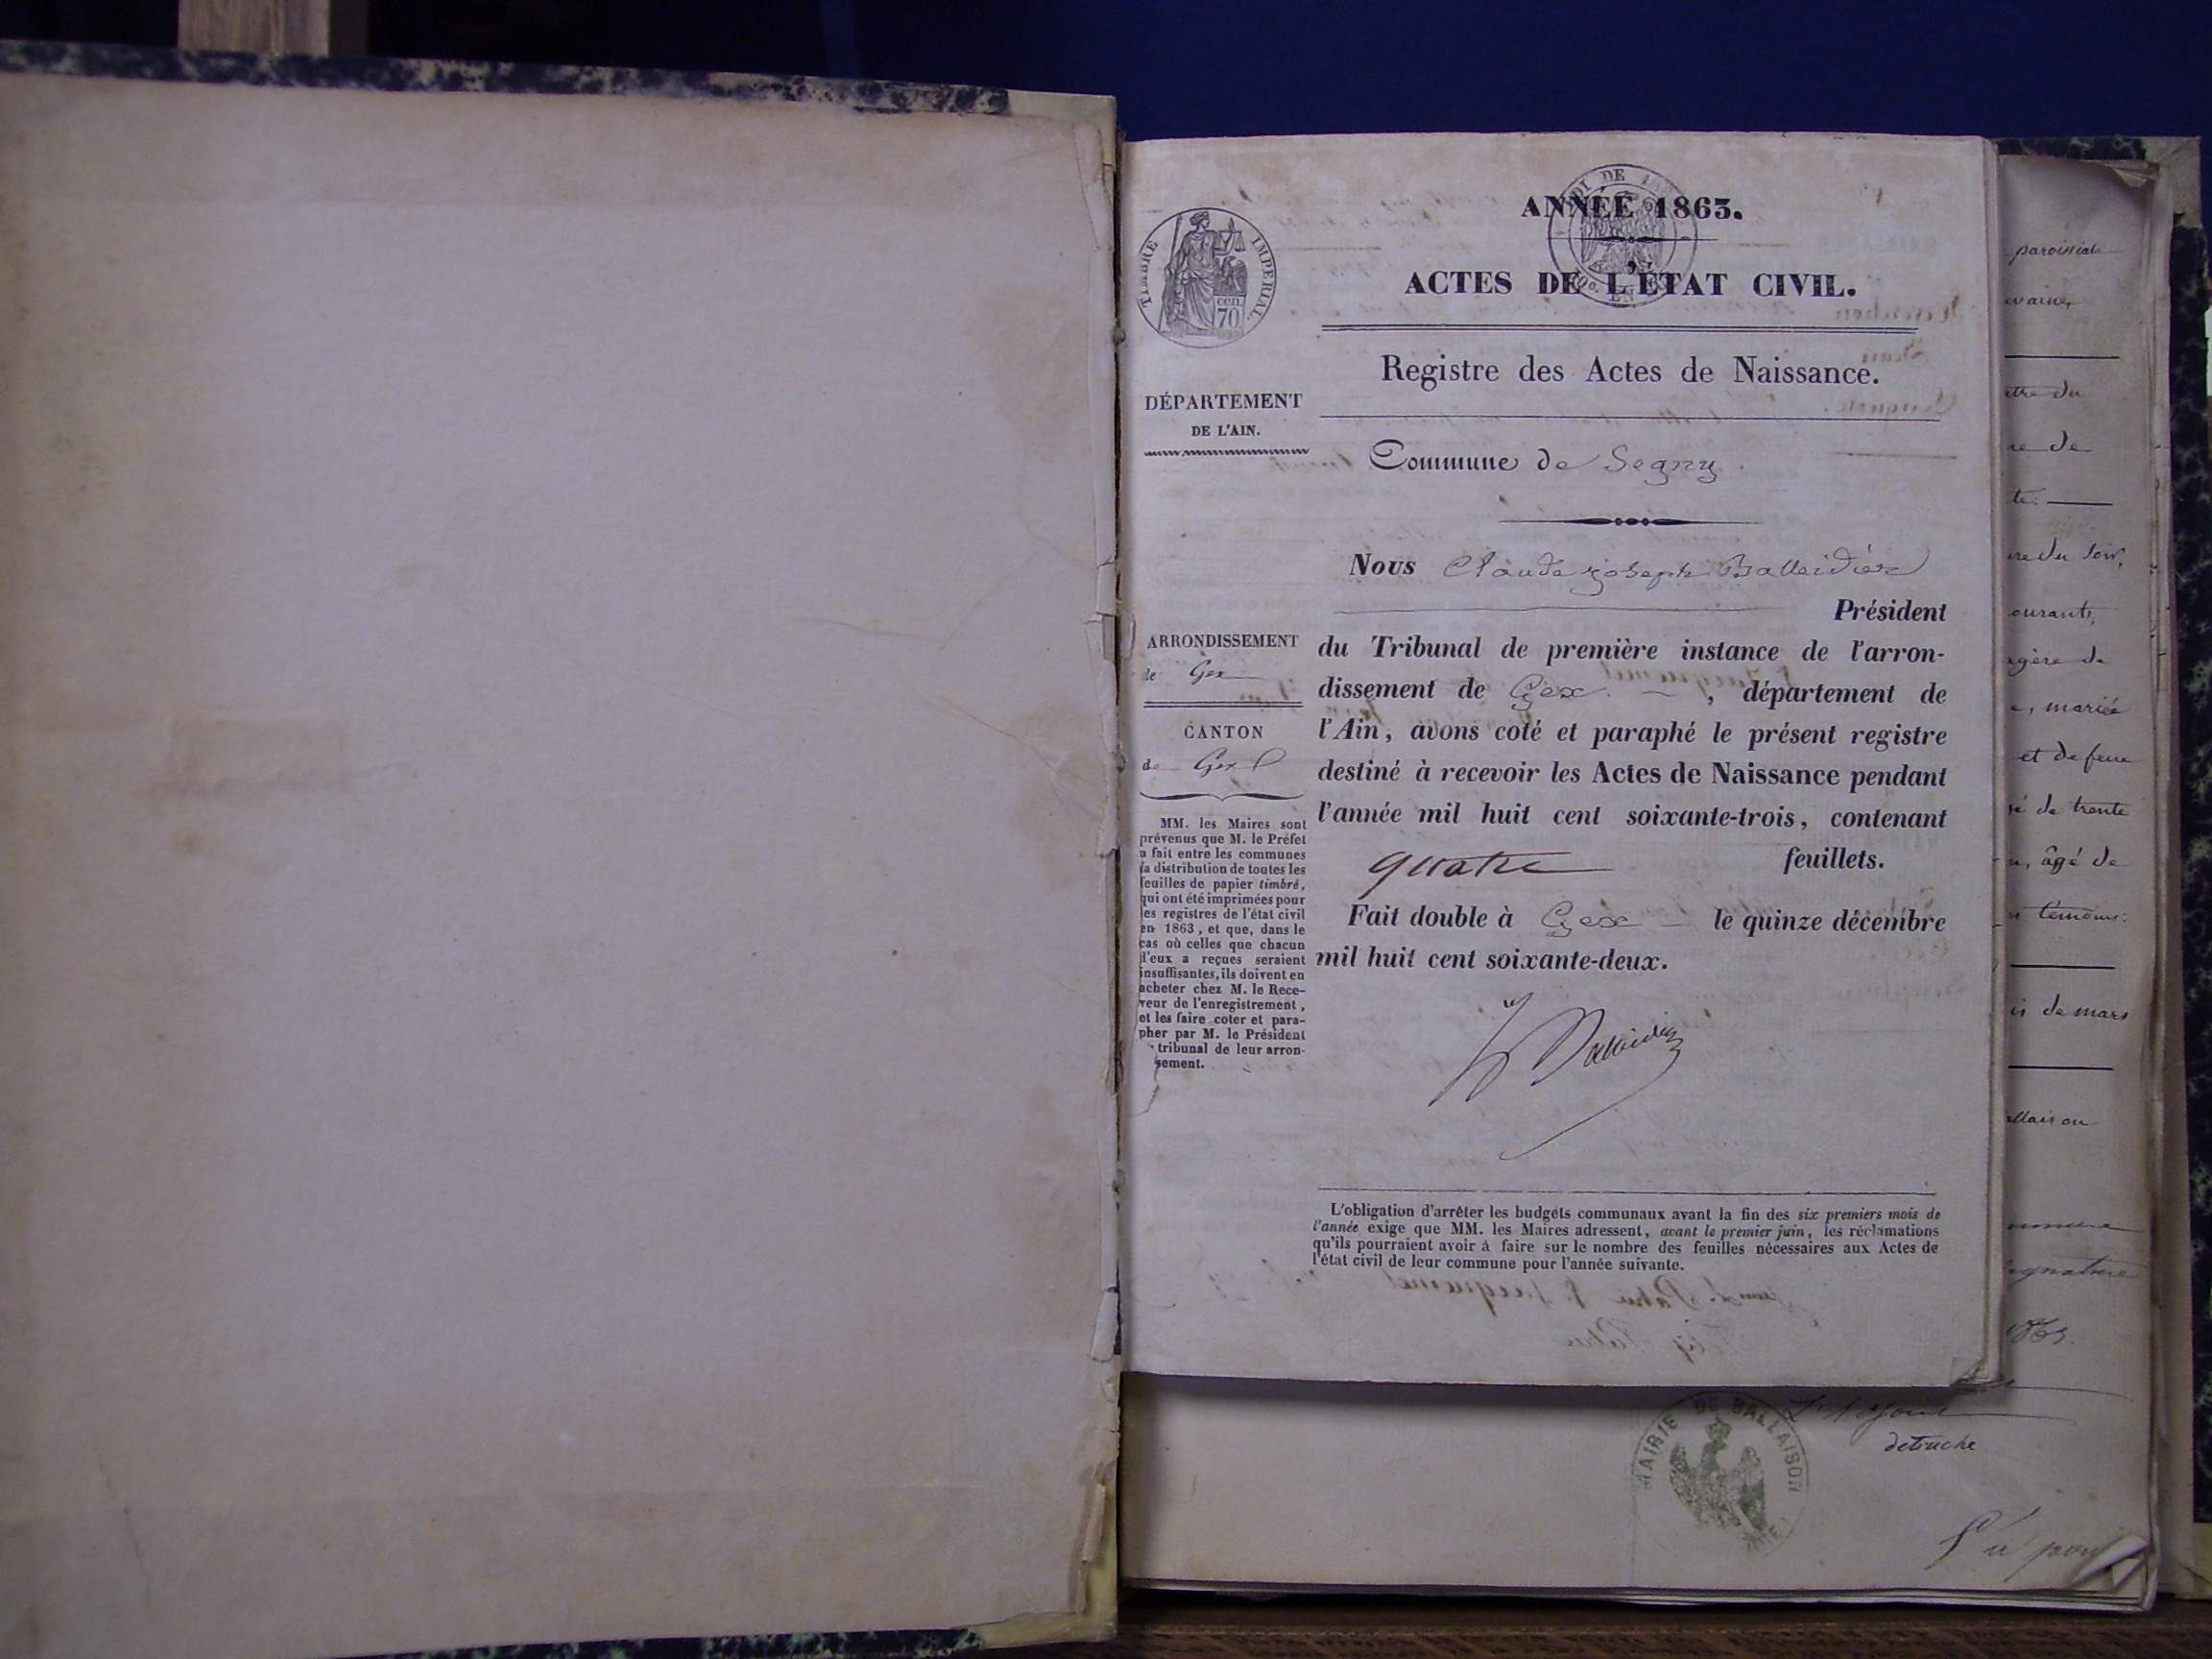 ANNÉE 1863.
ACTES DE L'ÉTAT CIVIL.
TIMBRE IMPERIAL
cen.
70
Registre des Actes de Naissance.
DÉPARTEMENT
DE L'AIN.
Commune de Segny
Nous Claude Joseph Balleidier
Président
ARRONDISSEMENT
de Gex
CANTON
de Gex
du Tribunal de première instance de l'arron-
dissement de Gex, département de
l'Ain, avons coté et paraphé le présent registre
destiné à recevoir les Actes de Naissance pendant
l'année mil huit cent soixante-trois, contenant
quatre feuillets.
Fait double à Gex le quinze décembre
mil huit cent soixante-deux.
MM. les Maires sont
prévenus que M. le Préfet
a fait entre les communes
la distribution de toutes les
feuilles de papier timbré,
qui ont été imprimées pour
les registres de l'état civil
en 1863, et que, dans le
cas où celles que chacun
d'eux a reçues seraient
insuffisantes, ils doivent en
acheter chez M. le Rece-
veur de l'enregistrement,
et les faire coter et para-
pher par M. le Président
tribunal de leur arron-
sement.
Balleidier
L'obligation d'arrêter les budgets communaux avant la fin des six premiers mois de
l'année exige que MM. les Maires adressent, avant le premier juin, les réclamations
qu'ils pourraient avoir à faire sur le nombre des feuilles nécessaires aux Actes de
l'état civil de leur commune pour l'année suivante.
du
de
du soir,
de
mariée
et de feue
de trente
âgé de
témoins.
de mars
MAIRIE DE BALLAISON
detruche